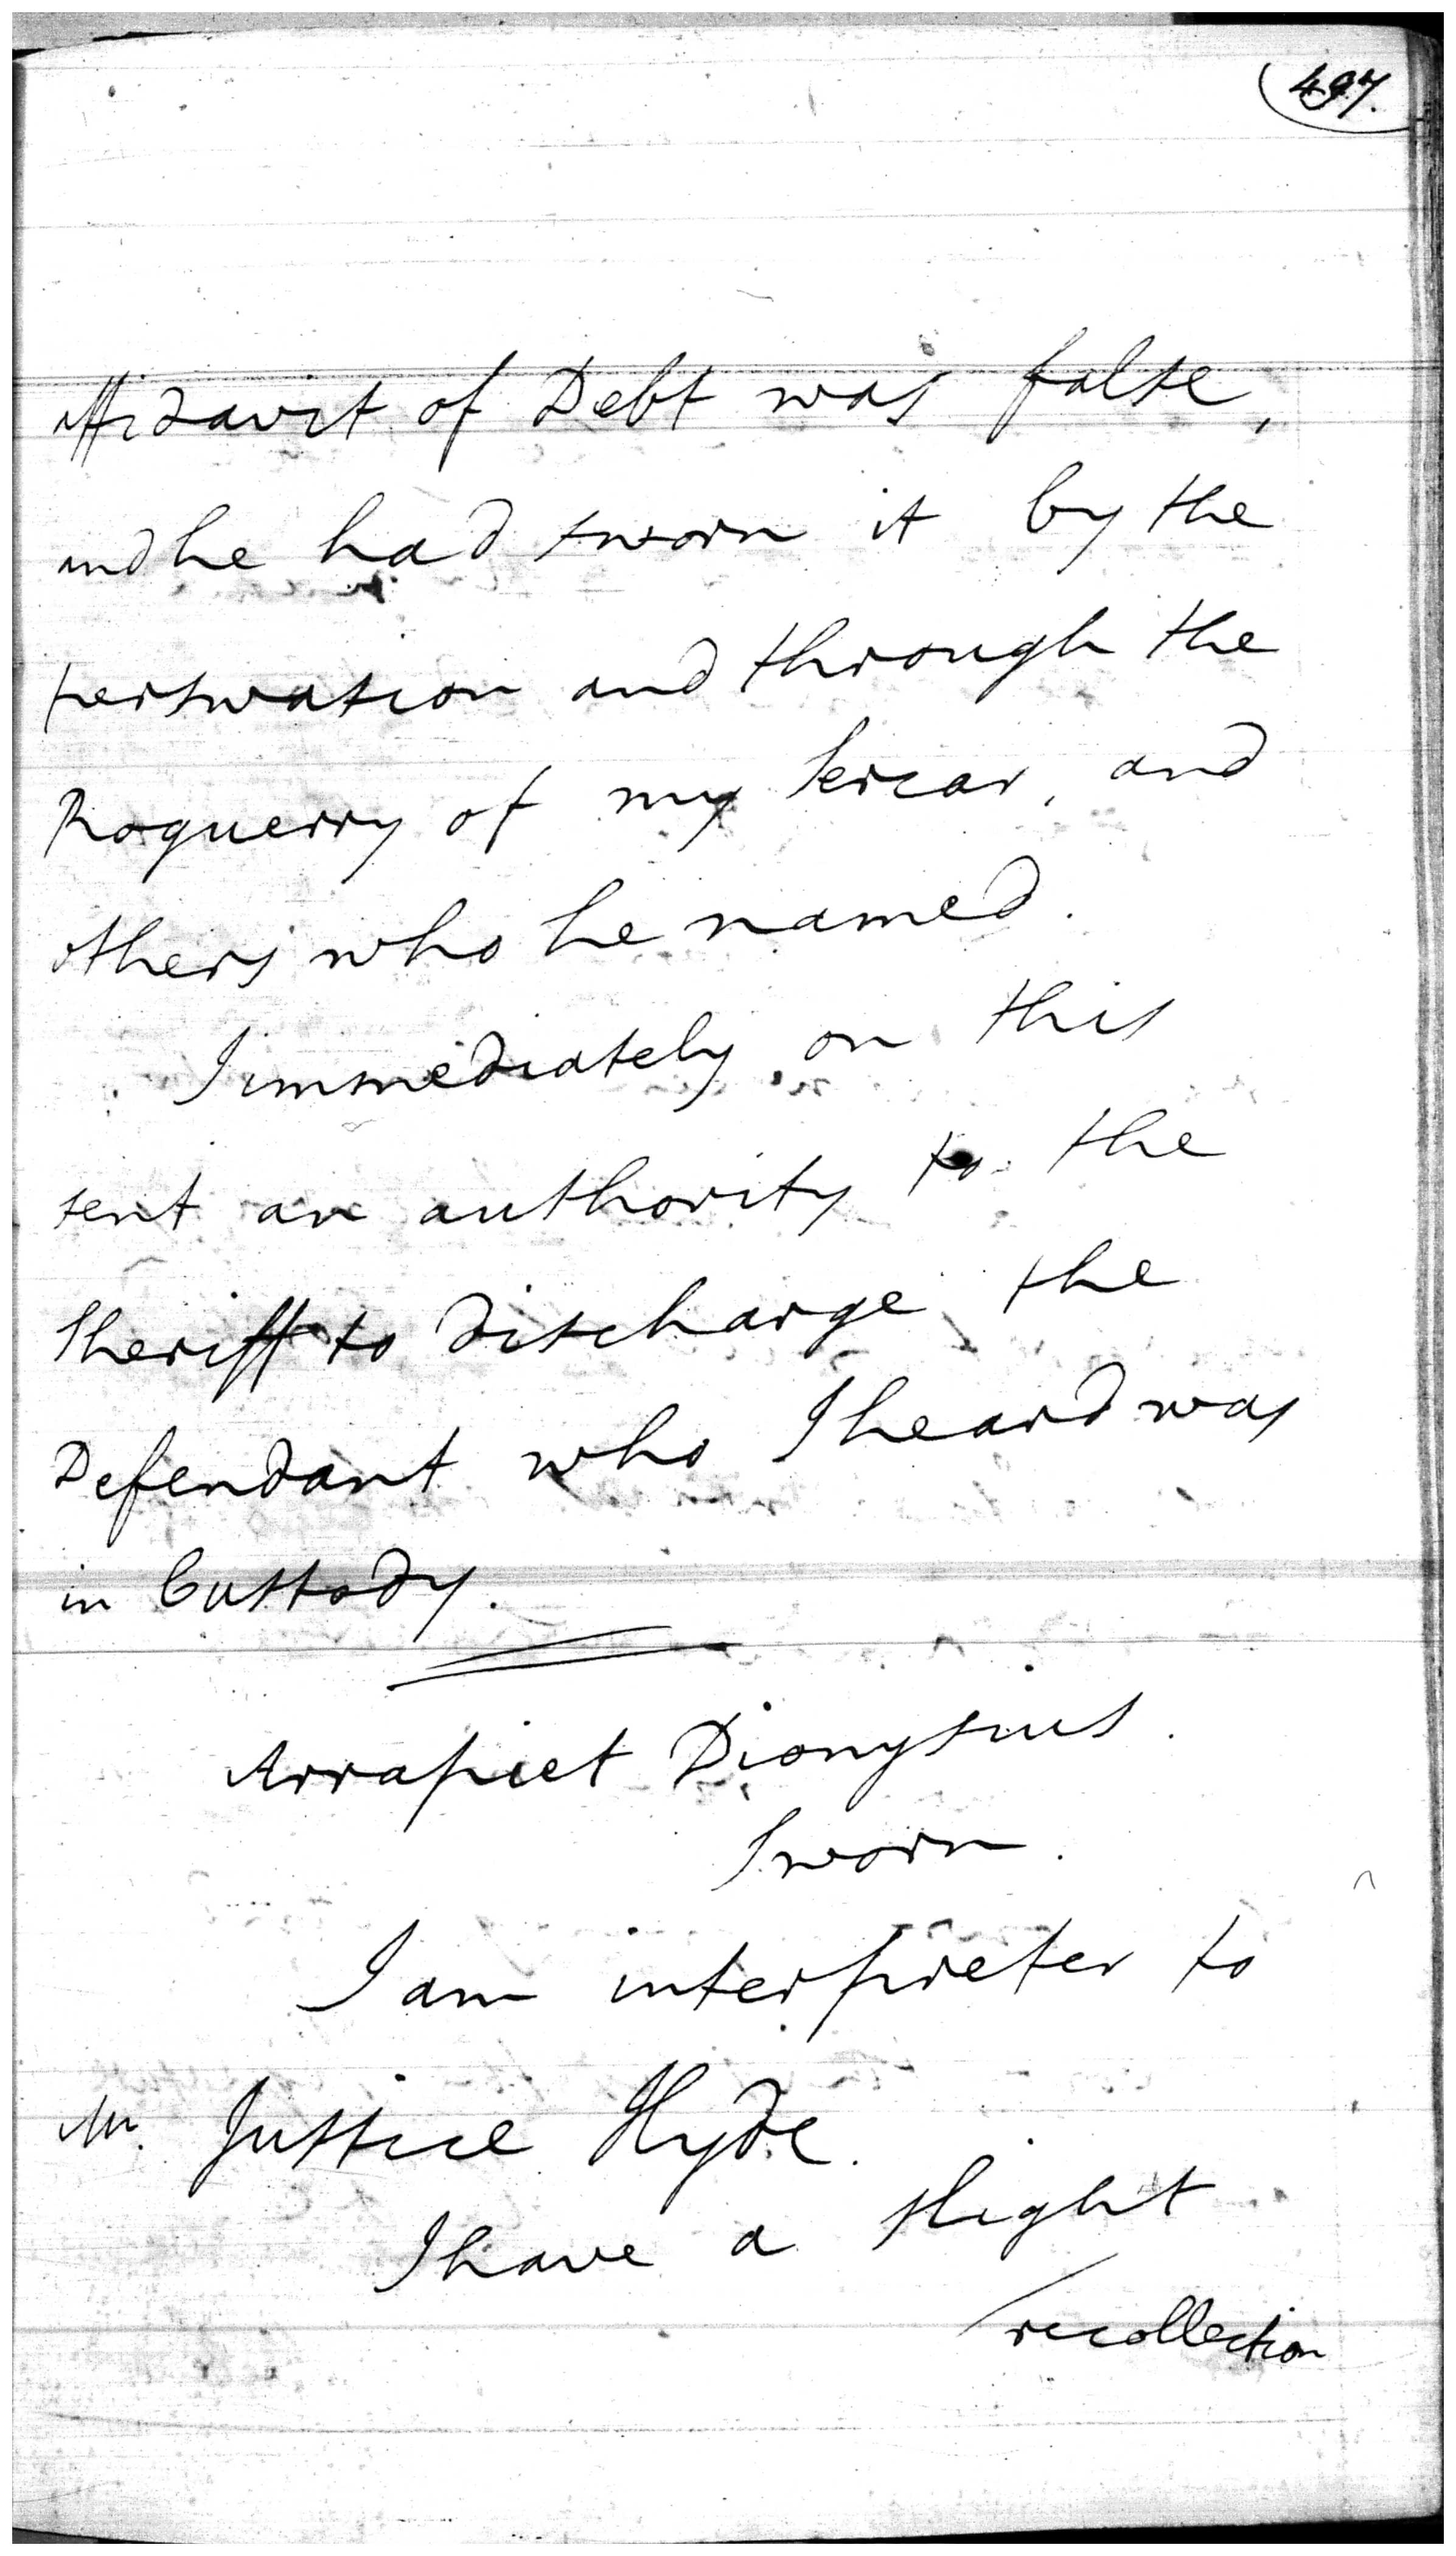 497.
affidavit of Debt was false,
and he had sworn it by the
perswasion and through the
Roguerry of my Sercar, and
others who he named.
I immediately on this
sent an authority to the
Sheriff to discharge the
Defendant who I heard was
in Custody.
Arrapiet Dionysius.
Sworn.
I am interpreter to
Mr. Justice Hyde.
I have a slight
recollection